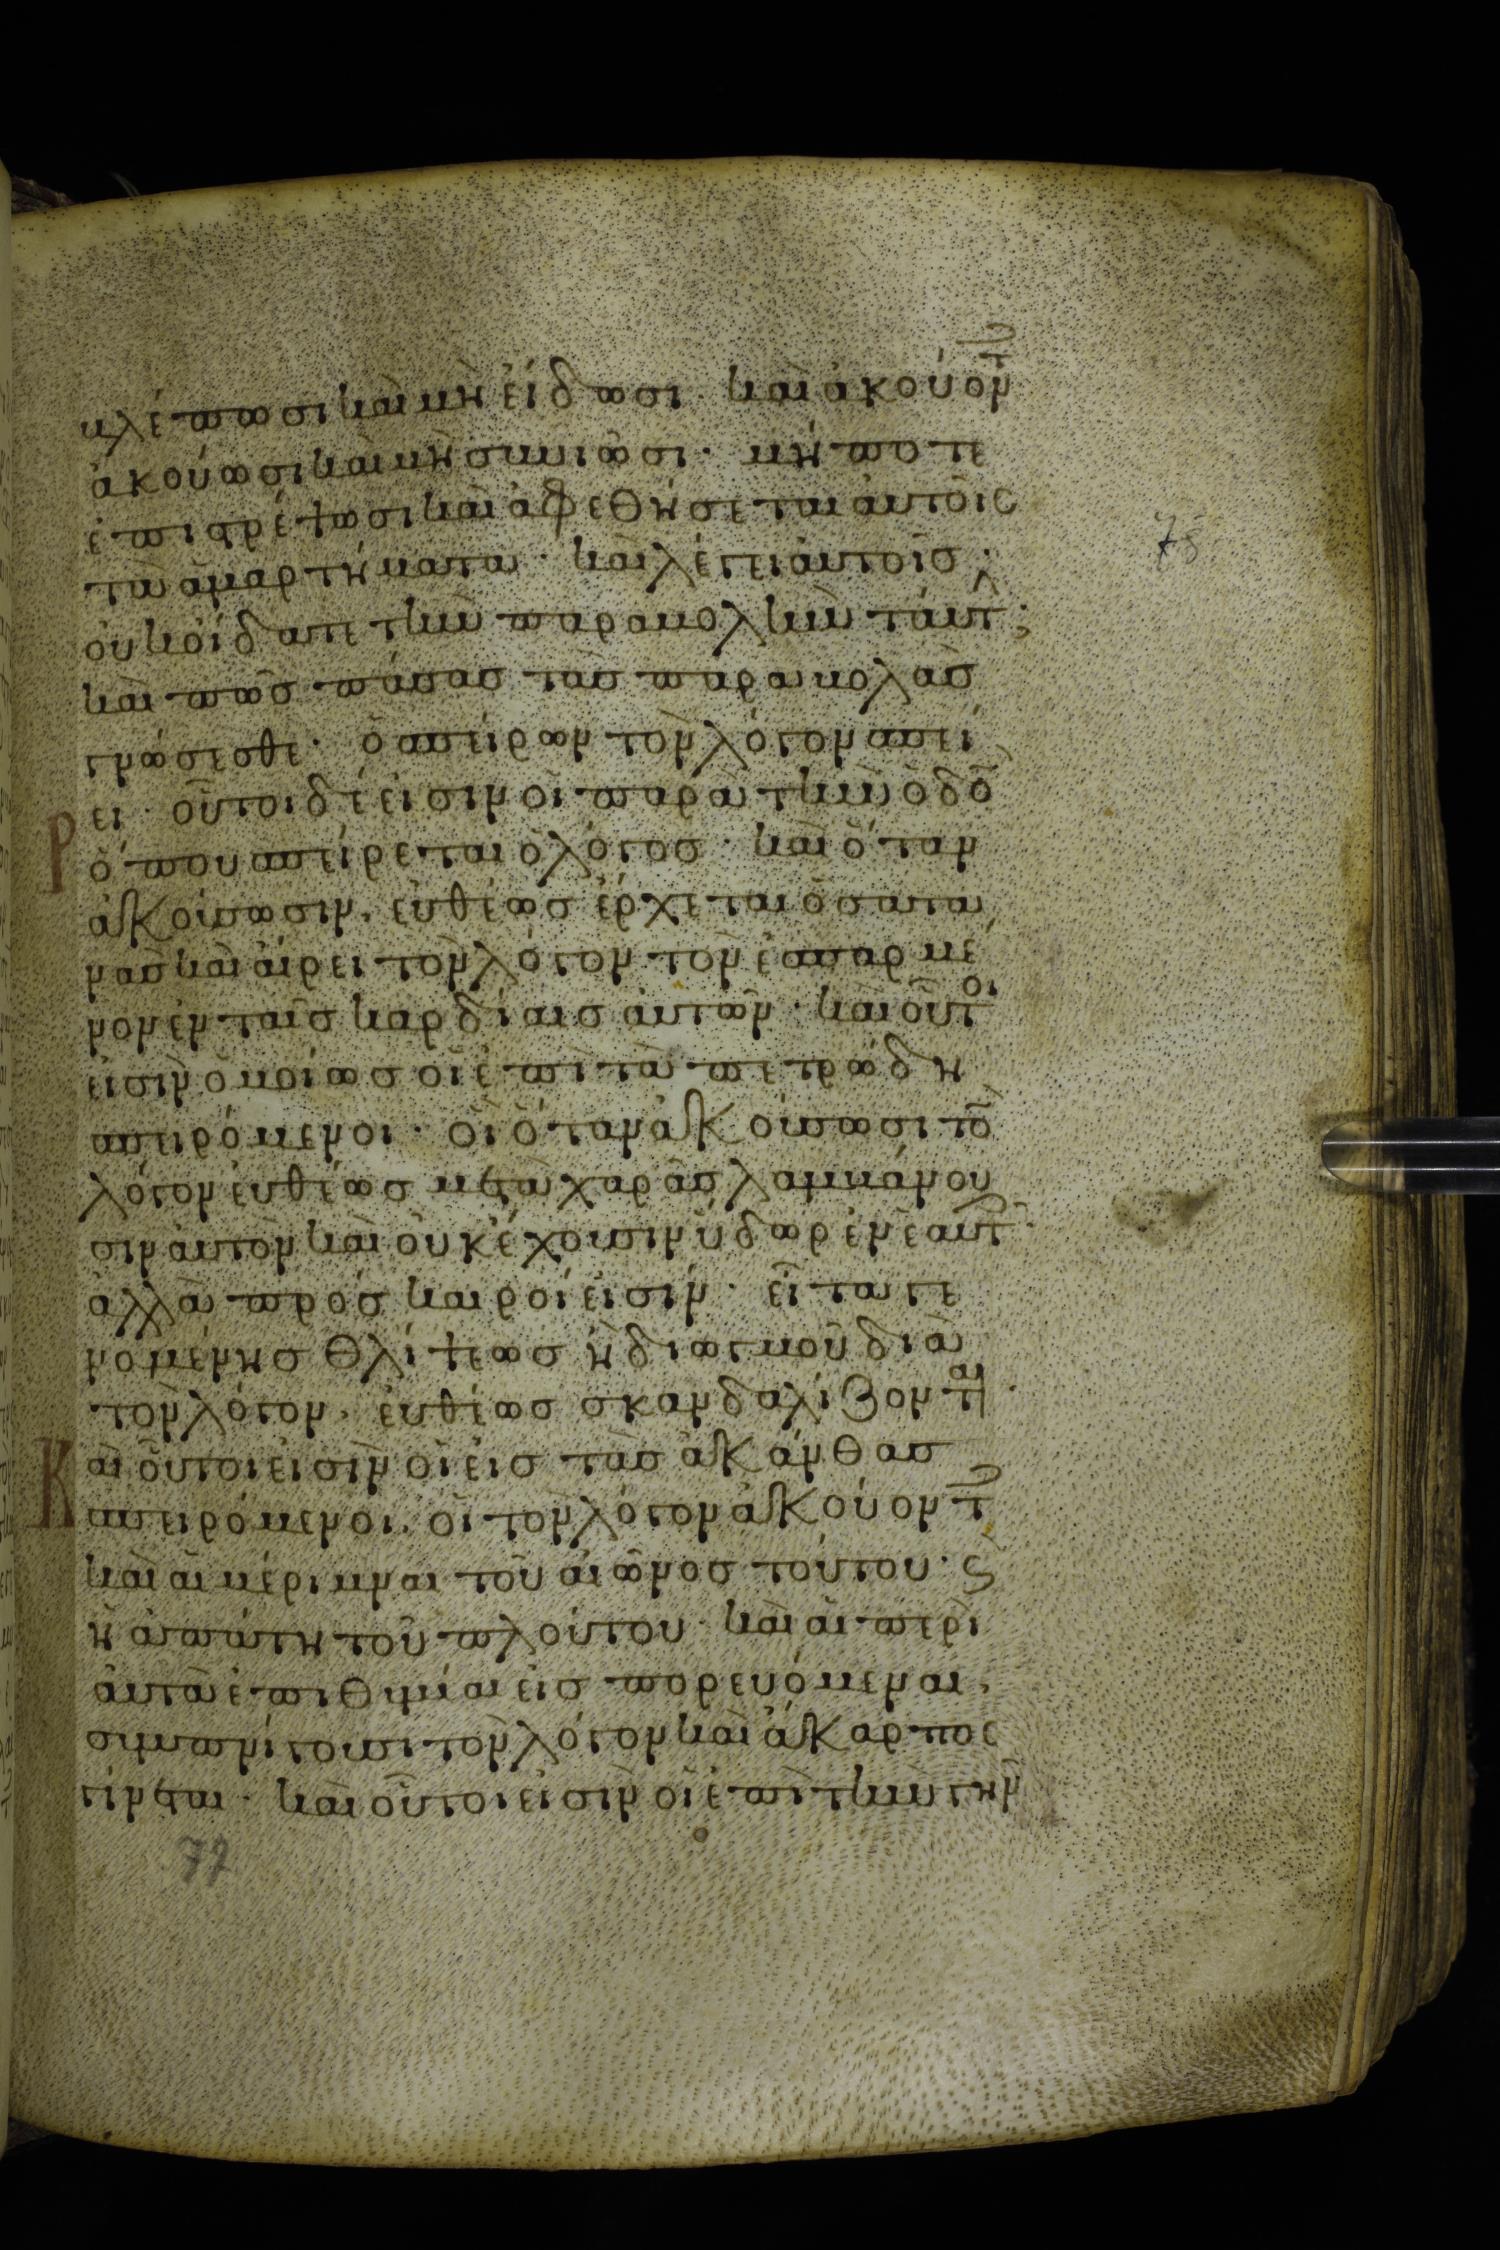 βλέπωσι καὶ μὴ εἴδωσι· καὶ ἀκούοντ(ες)
ἀκούωσι καὶ μὴ συνιῶσι· μήποτε
ἐπιστρέψωσι καὶ ἀφεθήσεται αὐτοῖς
τὰ ἁμαρτήματα· καὶ λέγει αὐτοῖς·
οὐκ οἴδατε τὴν παραβολὴν ταύτ(ην);
καὶ πῶς πάσας τὰς παραβολὰς
γνώσεσθε· ὁ σπείρων τὸν λόγον σπεί
ρει· οὗτοι δέ εἰσιν οἱ παρὰ τὴν ὁδὸ(ν)
ὅπου σπείρεται ὁ λόγος· καὶ ὅταν
ἀκούσωσιν, εὐθέως ἔρχεται ὁ σατα
νᾶς καὶ αἴρει τὸν λόγον τὸν ἐσπαρμέ
νον ἐν ταῖς καρδίαις αὐτῶν· καὶ οὗτοι
εἰσὶν ὁμοίως οἱ ἐπὶ τὰ πετρώδη
σπειρόμενοι· οἳ ὅταν ἀκούσωσι τὸ(ν)
λόγον εὐθέως μετὰ χαρᾶς λαμβάνου
σιν αὐτὸν καὶ οὐκ ἔχουσιν ὕδωρ ἐν ἑαυτ(οῖς)·
ἀλλὰ πρόσκαιροί εἰσιν· εἶτα γε
νομένης θλίψεως ἢ διωγμοῦ διὰ
τὸν λόγον, εὐθέως σκανδαλίζονται·
Καὶ οὗτοι εἰσὶν οἱ εἰς τὰς ἀκάνθας
σπειρόμενοι, οἱ τὸν λόγον ἀκούοντ(ες)
καὶ αἱ μέριμναι τοῦ αἰῶνος τούτου· ϛ
ἡ ἀπάτη τοῦ πλούτου· καὶ αἱ περὶ
αὐτὰ ἐπιθυμίαι εἰσπορευόμεναι,
συμπνίγουσι τὸν λόγον καὶ ἄκαρπος
γίνεται· καὶ οὗτοι εἰσὶν οἱ ἐπὶ τὴν γῆν
75
77